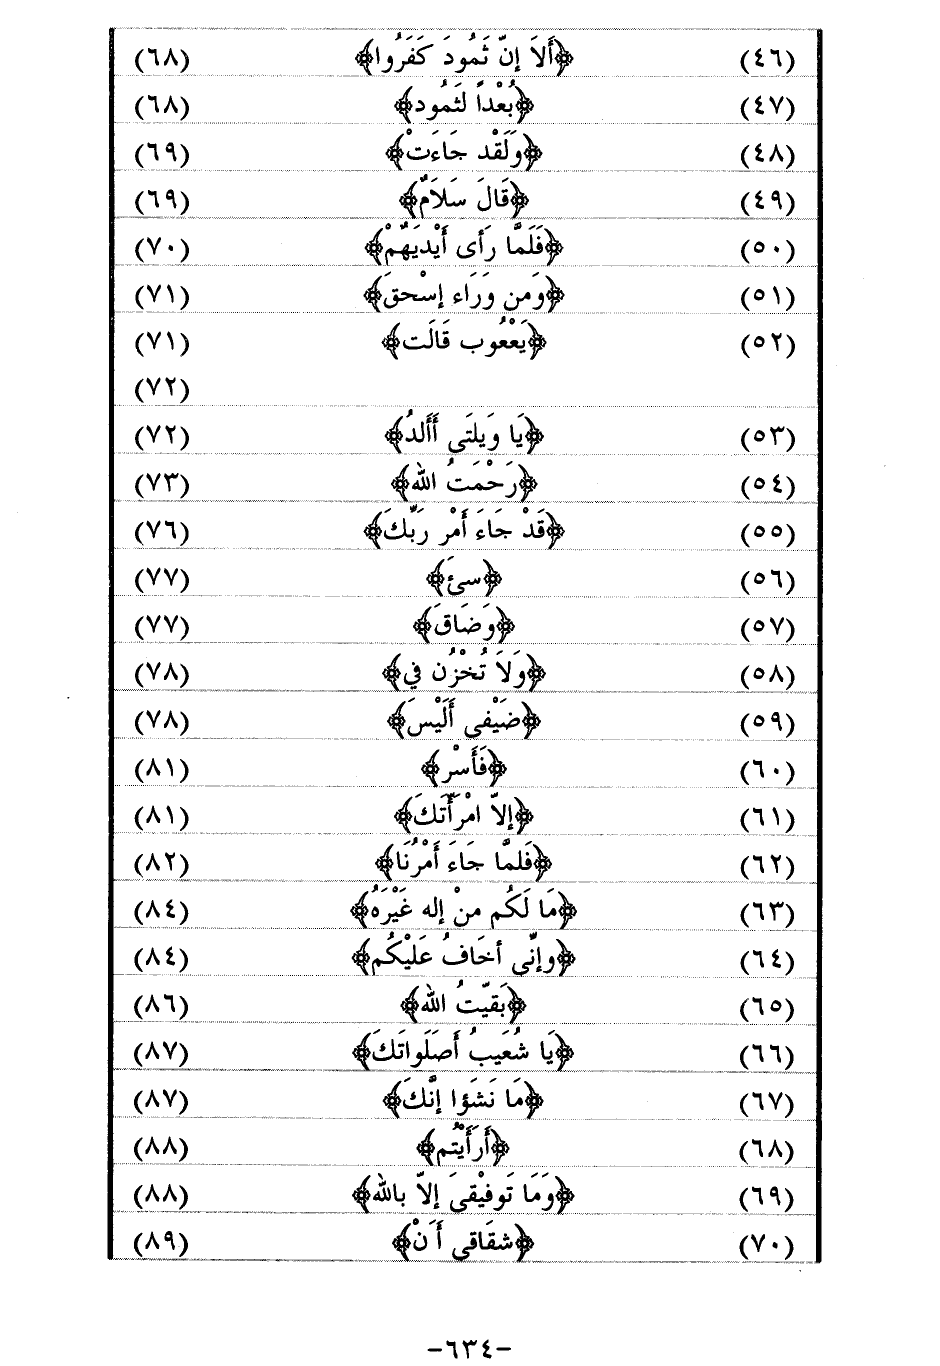 (٤٦) ﴿أَلاَ إنّ ثَمُودَ كَفَرُوا﴾ (٦٨)
(٤٧) ﴿بُعْداً لثَمُود﴾ (٦٨)
(٤٨) ﴿وَلَقْد جَاءَتْ﴾ (٦٩)
(٤٩) ﴿قَالَ سَلاَمٌ﴾ (٦٩)
(٥٠) ﴿فَلَمَّا رَأى أَيْديَهُمْ﴾ (٧٠)
(٥١) ﴿وَمن وَرَاء إسْحقَ﴾ (٧١)
(٥٢) ﴿يَعْقُوب قَالَت﴾ (٧١)
(٧٢)
(٥٣) ﴿يَا وَيلَتَى أَأَلدُ﴾ (٧٢)
(٥٤) ﴿رَحْمَتُ الله﴾ (٧٣)
(٥٥) ﴿قَدْ جَاءَ أَمْر رَبِّكَ﴾ (٧٦)
(٥٦) ﴿سئَ﴾ (٧٧)
(٥٧) ﴿وَضَاقَ﴾ (٧٧)
(٥٨) ﴿وَلاَ تُخْزُن في﴾ (٧٨)
(٥٩) ﴿ضَيْفى أَلَيْسَ﴾ (٧٨)
(٦٠) ﴿فَأَسْر﴾ (٨١)
(٦١) ﴿إلاّ امْرَأَتَكَ﴾ (٨١)
(٦٢) ﴿فَلمَّا جَاءَ أَمْرُنَا﴾ (٨٢)
(٦٣) ﴿مَا لَكُم منْ إله غَيْرَهُ﴾ (٨٤)
(٦٤) ﴿وإنِّى أخَافُ عَليْكُم﴾ (٨٤)
(٦٥) ﴿بَقيّتُ الله﴾ (٨٦)
(٦٦) ﴿يَا شُعَيبُ أَصَلَواتَكَ﴾ (٨٧)
(٦٧) ﴿مَا نَشَؤا إنَّكَ﴾ (٨٧)
(٦٨) ﴿أَرَأَيْتُم﴾ (٨٨)
(٦٩) ﴿وَمَا تَوفيْقىَ إلاّ بالله﴾ (٨٨)
(٧٠) ﴿شقَاقى أَنْ﴾ (٨٩)
-٦٣٤-